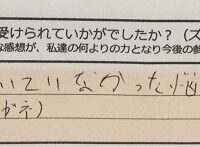 受けられていかがでしたか？（ス
な感想が、私達の何よりの力となり今後の参
いていなかった悩
ガネ）